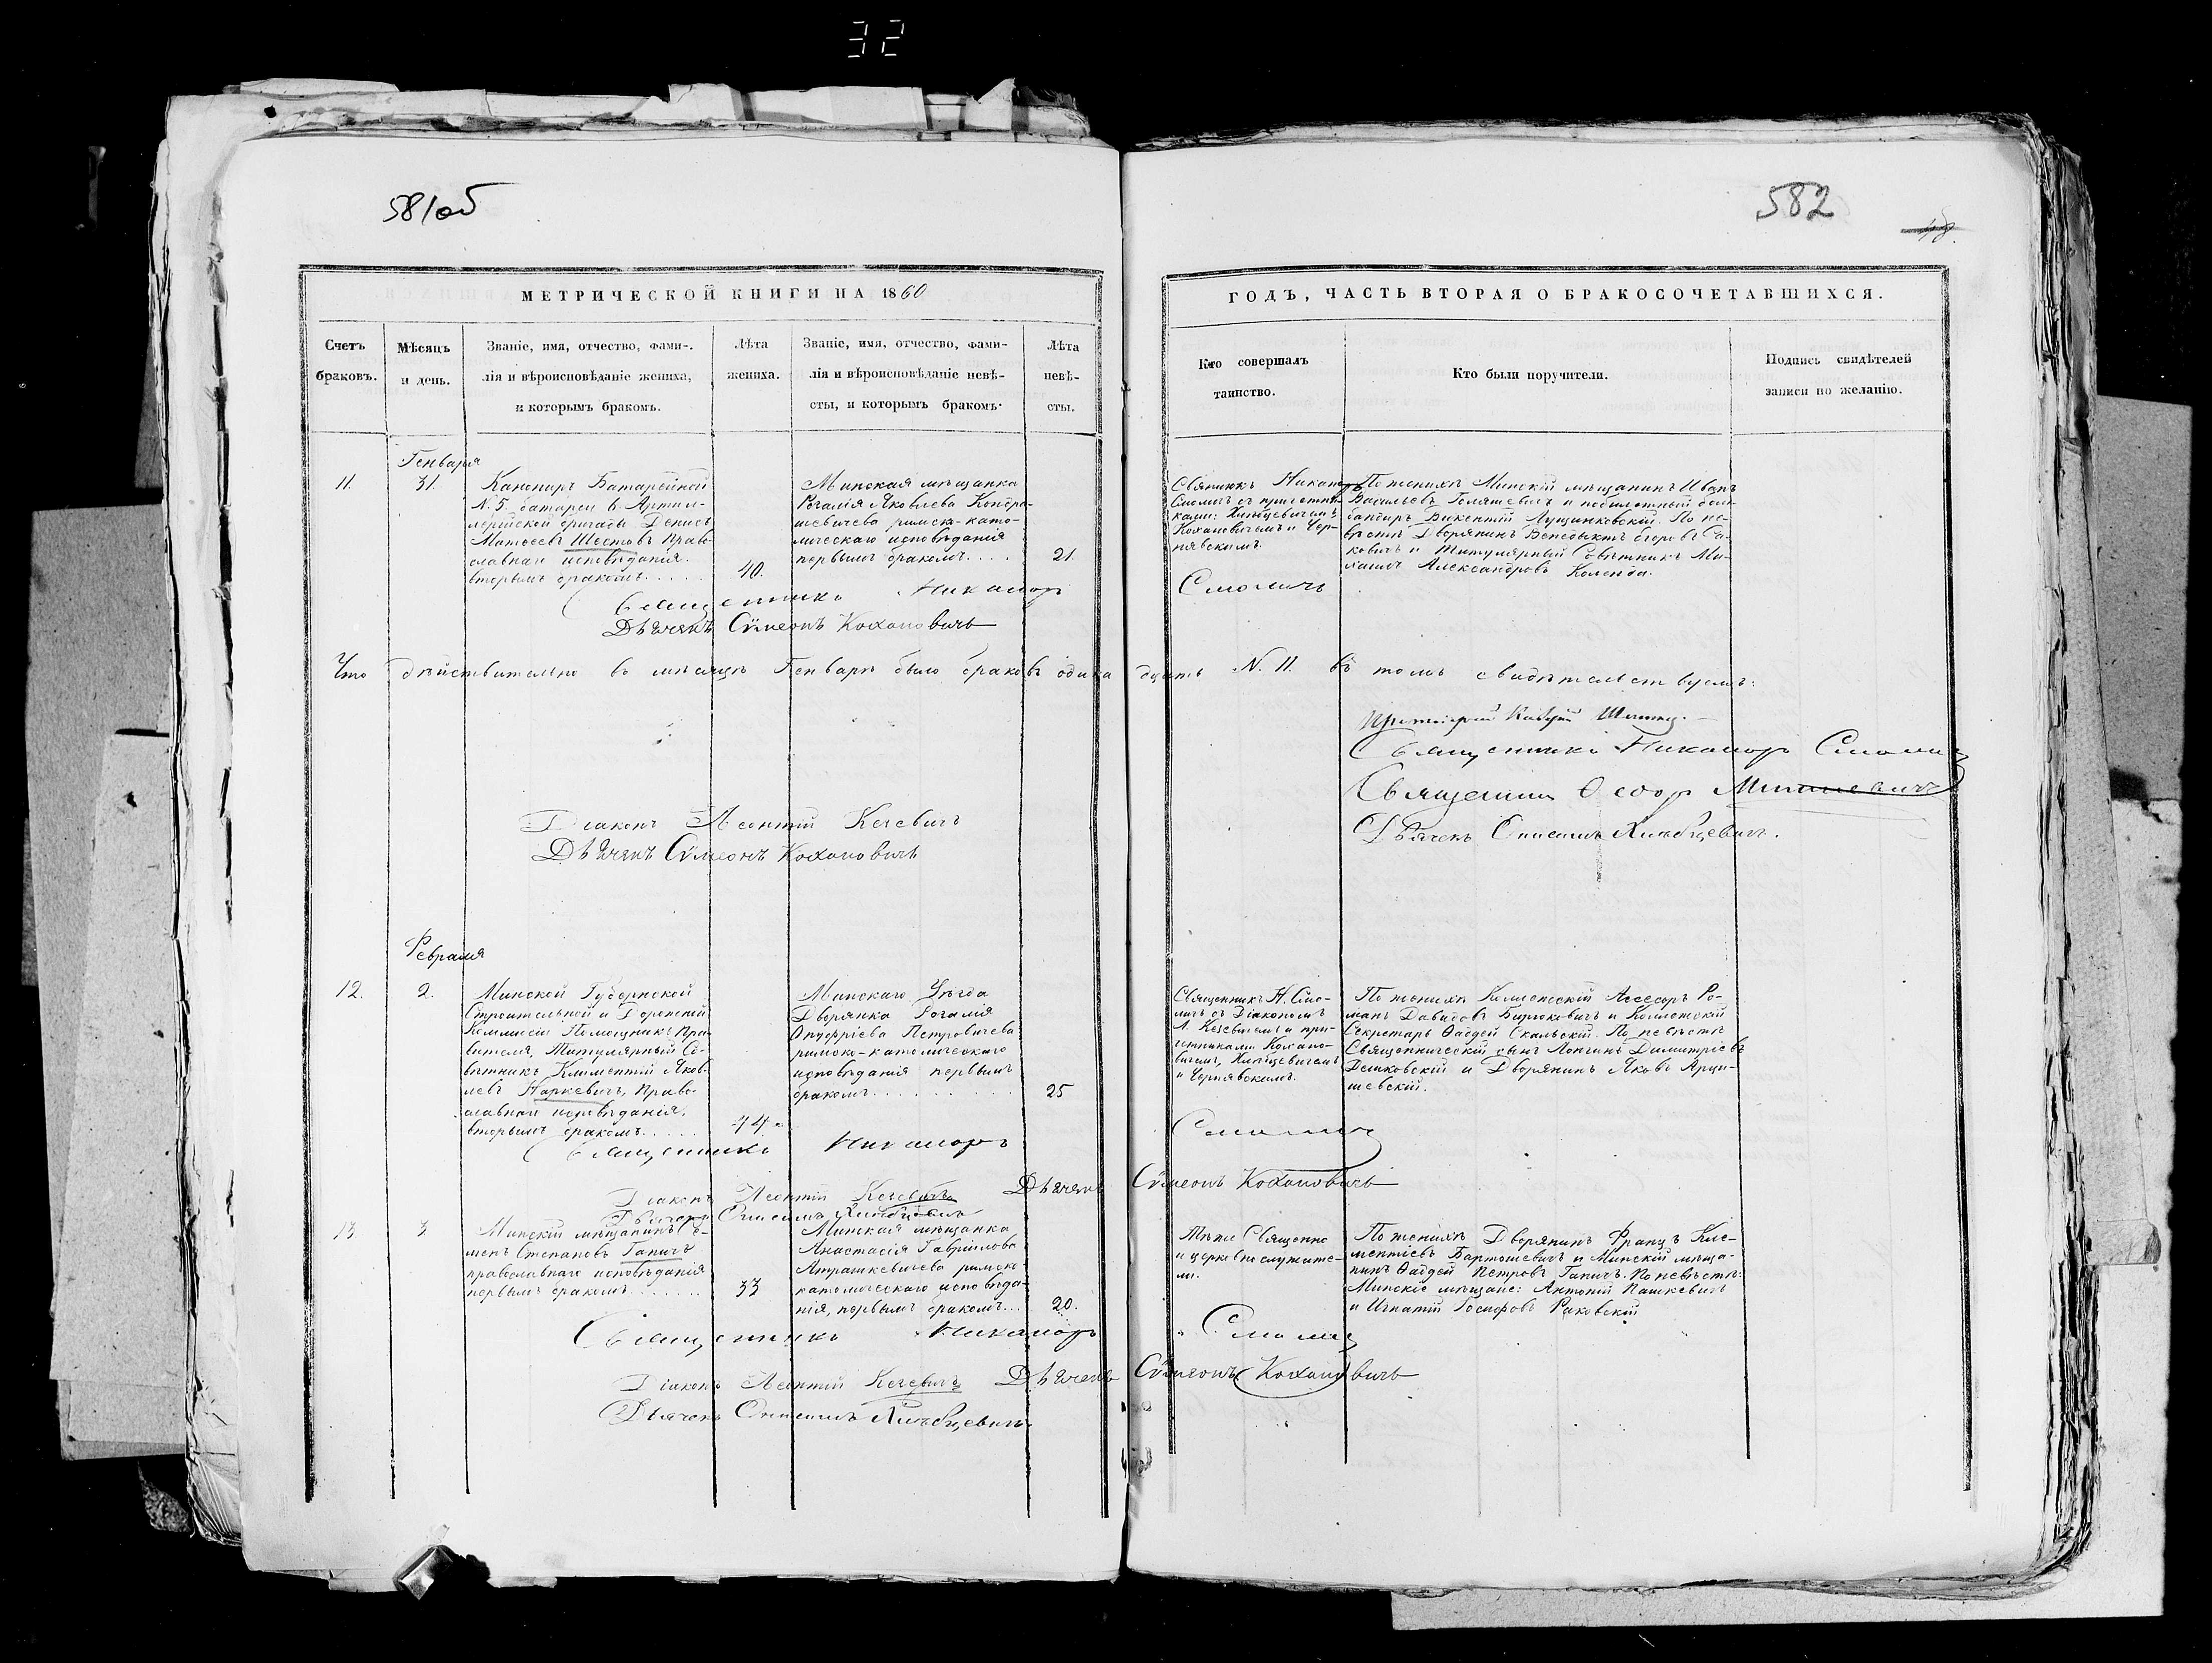 32
581об
582
48.
МЕТРИЧЕСКОЙ КНИГИ НА 1860
ГОДЪ, ЧАСТЬ ВТОРАЯ О БРАКОСОЧЕТАВШИХСЯ.
Счетъ
браковъ.
Мѣсяцъ
и день.
Званіе, имя, отчество, фами-
лія и вѣроисповѣданіе жениха,
и которымъ бракомъ.
Лѣта
жениха.
Званіе, имя, отчество, фами-
лія и вѣроисповѣданіе невѣ-
сты, и которымъ бракомъ.
Лѣта
невѣ-
сты.
Кто совершалъ
таинство.
Кто были поручители.
Подпись свидѣтелей
записи по желанію.
Генваря
11.
31.
Канониръ Батарейной
N. 5. батареи 6. Артил-
лерійской бригады Денисъ
Матвеевъ Шестовъ право-
славнаго исповѣданія.
вторымъ бракомъ......
40.
Минская мѣщанка
Рогалія Яковлева Кондра-
шевичева римско-като-
лическаго исповѣданія
первымъ бракомъ....
21.
Священикъ Никаноръ
Смоличъ съ причетни-
ками: Хлѣбцевичемъ
Кохановичемъ и Чер-
нявскимъ.
По женихѣ Минскій мѣщанинъ Иванъ
Васильевъ Голяшевичъ и
Викентій Лущинковскій. По не-
вѣстѣ Дворянинъ Бенедыктъ
и Титулярный Совѣтникъ Ми-
хаилъ Александровъ Коленда.
Священникъ Никаноръ Смоличъ
Дьячекъ Сѵмеонъ Кохановичъ
Что дѣйствительно въ мѣсяцѣ Генварѣ было браковъ одинадцать N. 11. въ томъ свидѣтельствуемъ:
Протоіерей
Священникъ Никаноръ Смоличъ
Священникъ Ѳеодоръ
Діаконъ Леонтій Кегевичъ
Дьячекъ Онисимъ Хлѣбцевичъ.
Дьячекъ Сѵмеонъ Кохановичъ
Февраля
12.
2.
Минской Губернской
Строительной и Дорожной
Коммисіи Помощникъ Пра-
вителя, Титулярный Со-
вѣтникъ Климентій Яков-
левъ Наркевичъ, Право-
славнаго исповѣданія,
вторымъ бракомъ.....
44.
Минскаго Уѣзда
Дворянка Рогалія
Онуфріева Петровичева
римско-католическаго
исповѣданія первымъ
бракомъ..........
25
Священникъ Н. Смо-
личъ съ Діакономъ
Л. Кегевичемъ и при-
четниками Кохано-
вичемъ, Хлѣбцевичемъ
и Чернявскимъ.
По женихѣ Коллежскій Ассесоръ Ро-
манъ Давидовъ Бируковичъ и Коллежскій
Секретарь Ѳаддей Скальскій. По невѣстѣ
Священническій сынъ Лонгинъ Димитріевъ
Дешковскій и Дворянинъ Яковъ Арци-
шевскій.
Священникъ Никаноръ Смоличъ
Діаконъ Леонтій Кегевичъ Дьячекъ Сѵмеонъ Кохановичъ
Дьячекъ Онисимъ Хлѣбцевичъ
13
3
Минскій мѣщанинъ Се-
менъ Степановъ Гапичъ
православнаго исповѣданія
первымъ бракомъ.......
33
Минская мѣщанка
Анастасія Гавріилова
Атрашкевичева римско-
католическаго исповѣда-
нія, первымъ бракомъ...
20.
Тѣже Священно
и церковнослужите-
ли.
По женихѣ Дворянинъ Францъ Кле-
ментіевъ Бартошевичъ и Минскій мѣща-
нинъ Ѳаддей Петровъ Гапичъ. По невѣстѣ:
Минскіе мѣщане: Антоній Пашкевичъ
и Игнатій Іосифовъ Раковскій
Священникъ Никаноръ Смоличъ
Діаконъ Леонтій Кегевичъ Дьячекъ Сѵмеонъ Кохановичъ
Дьячекъ Онисимъ Хлѣбцевичъ.